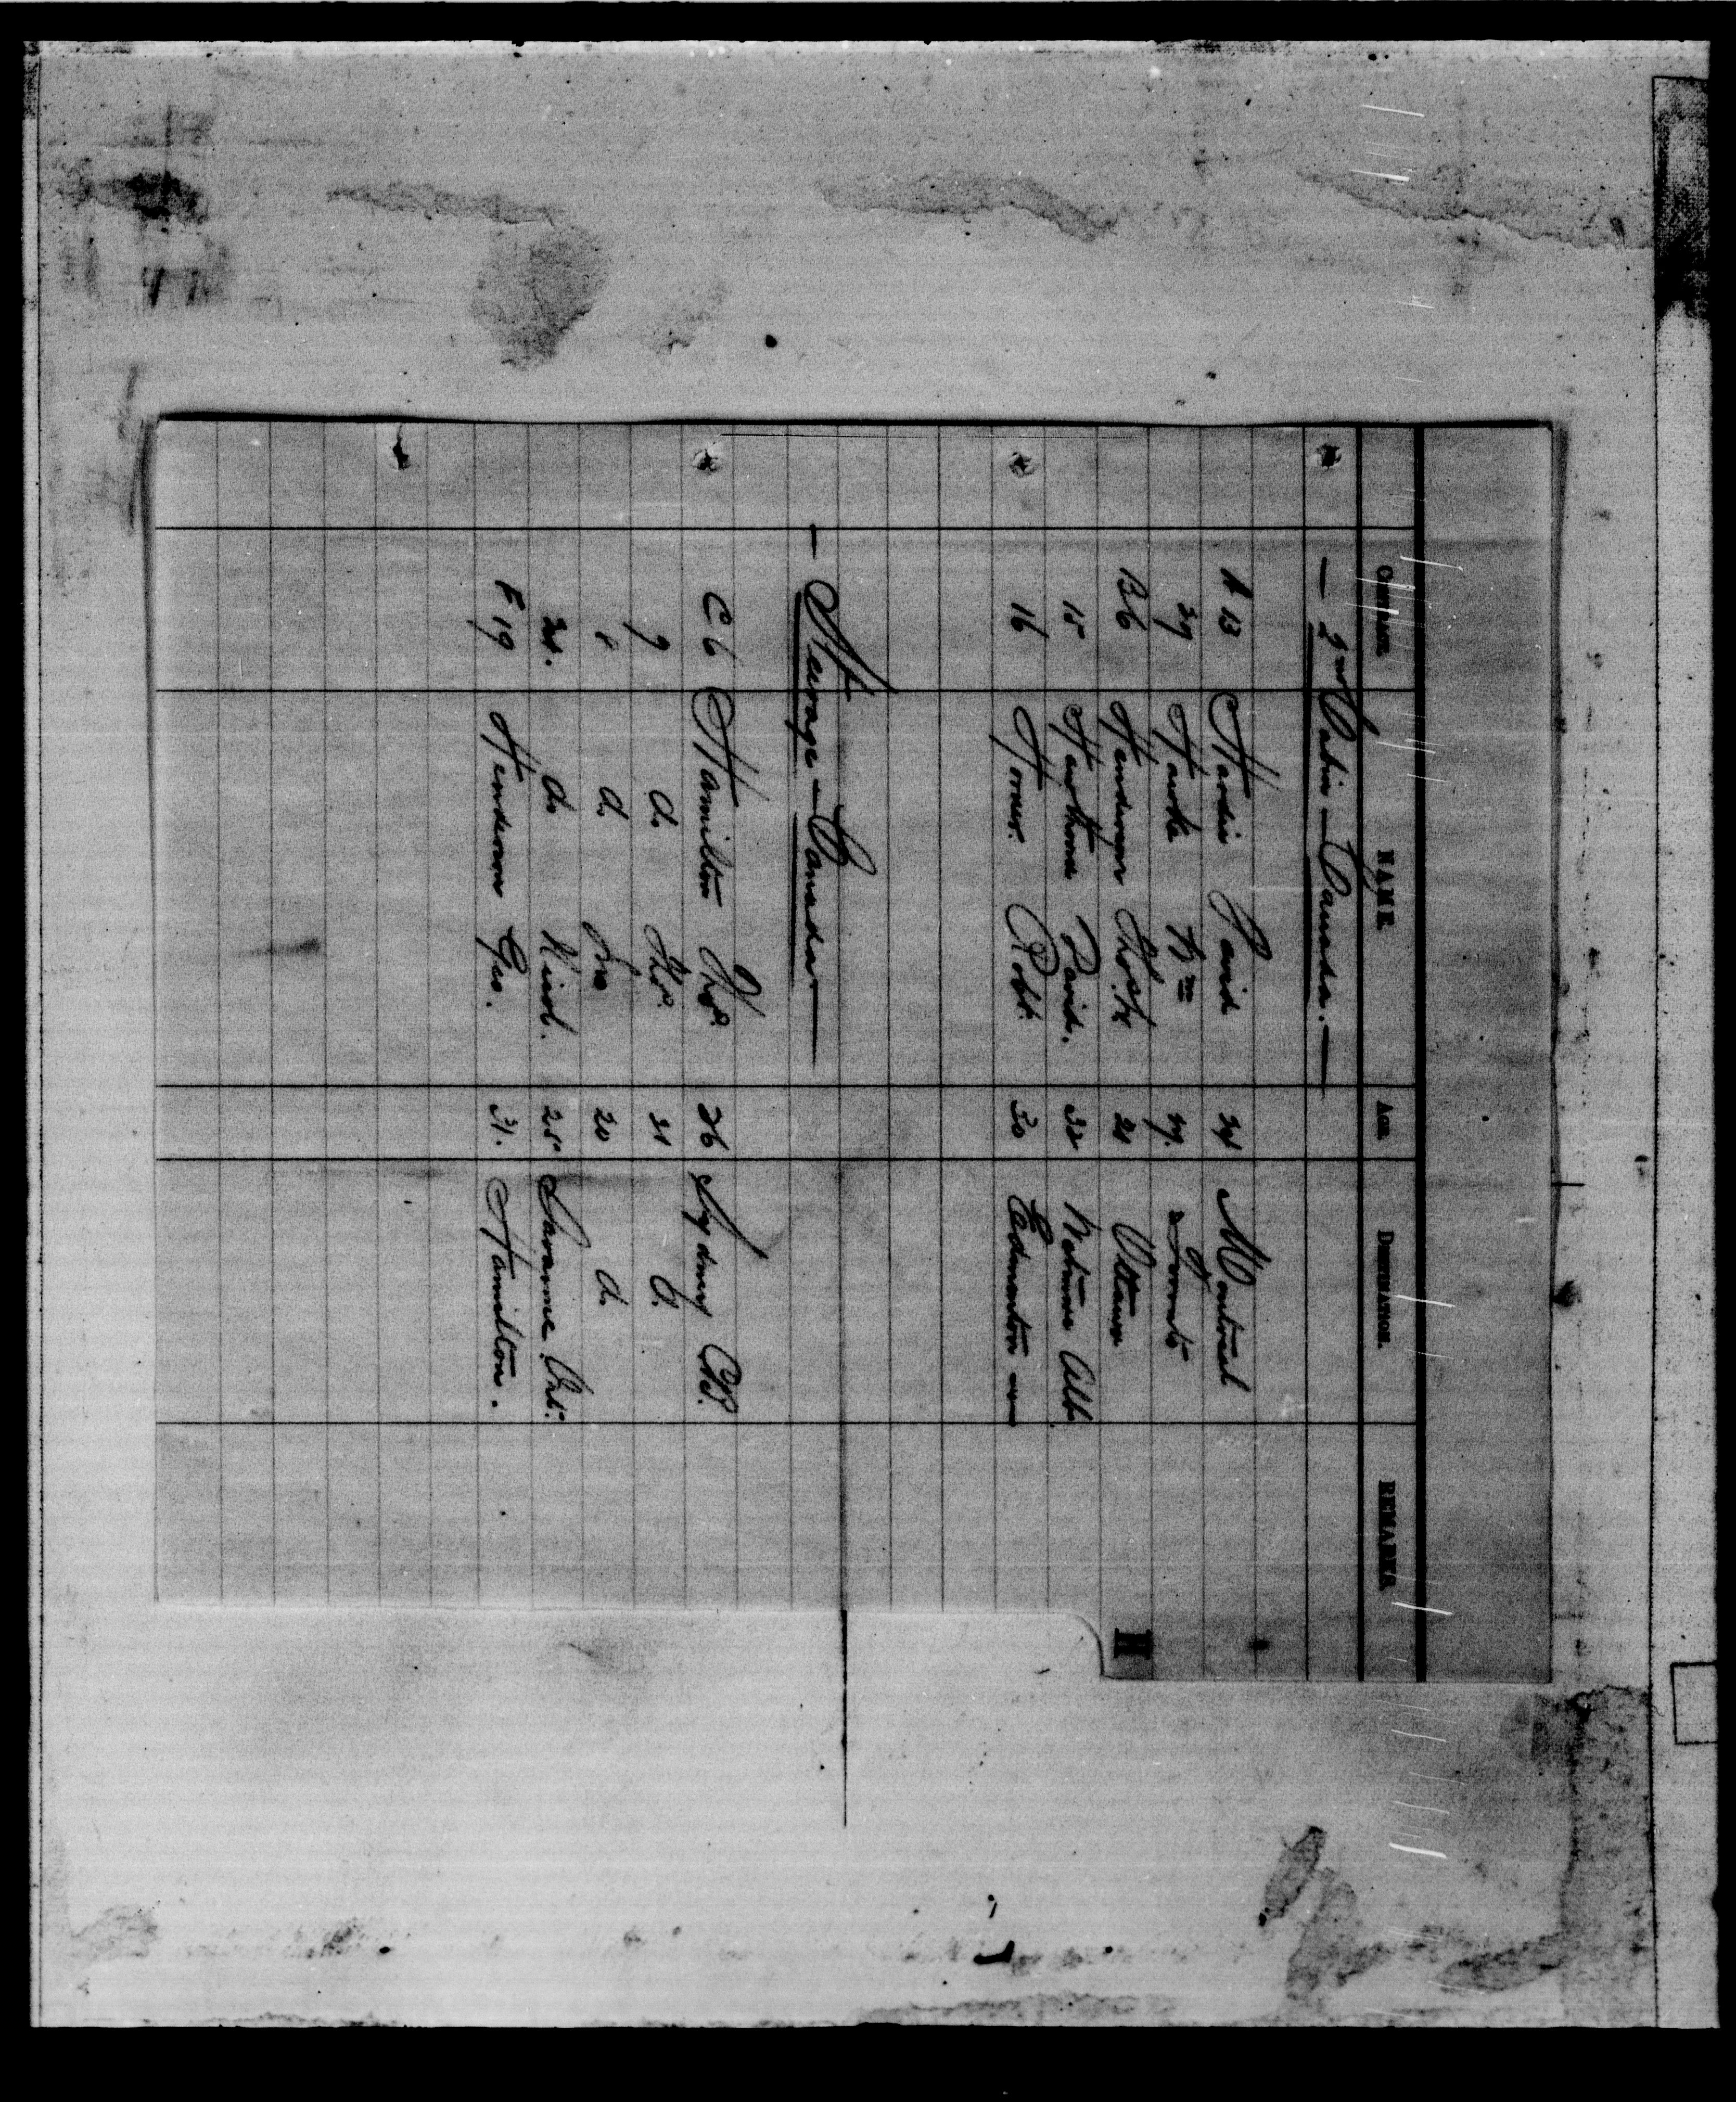 CONTRACT. NAME. AGE. DESTINATION. REMARKS.
— 2nd Cabin – Canada. —
A 13 Hardie David 24 Montreal
29 Hawke Wm 29. Toronto
B6 Henderson Thos. H 21 Ottawa
15 Hawthorne David. 32 Alb
16 Horner. Robt. 30 Edmonton "
— Steerage – Canada —
C 6 Hamilton Thos. 26 Sydney CB.
7 do Thos. 21 do
8 do Jno 20 do
24. do Nicol. 25 Savanne. Ont.
F 19 Henderson Geo. 31. Hamilton.
H